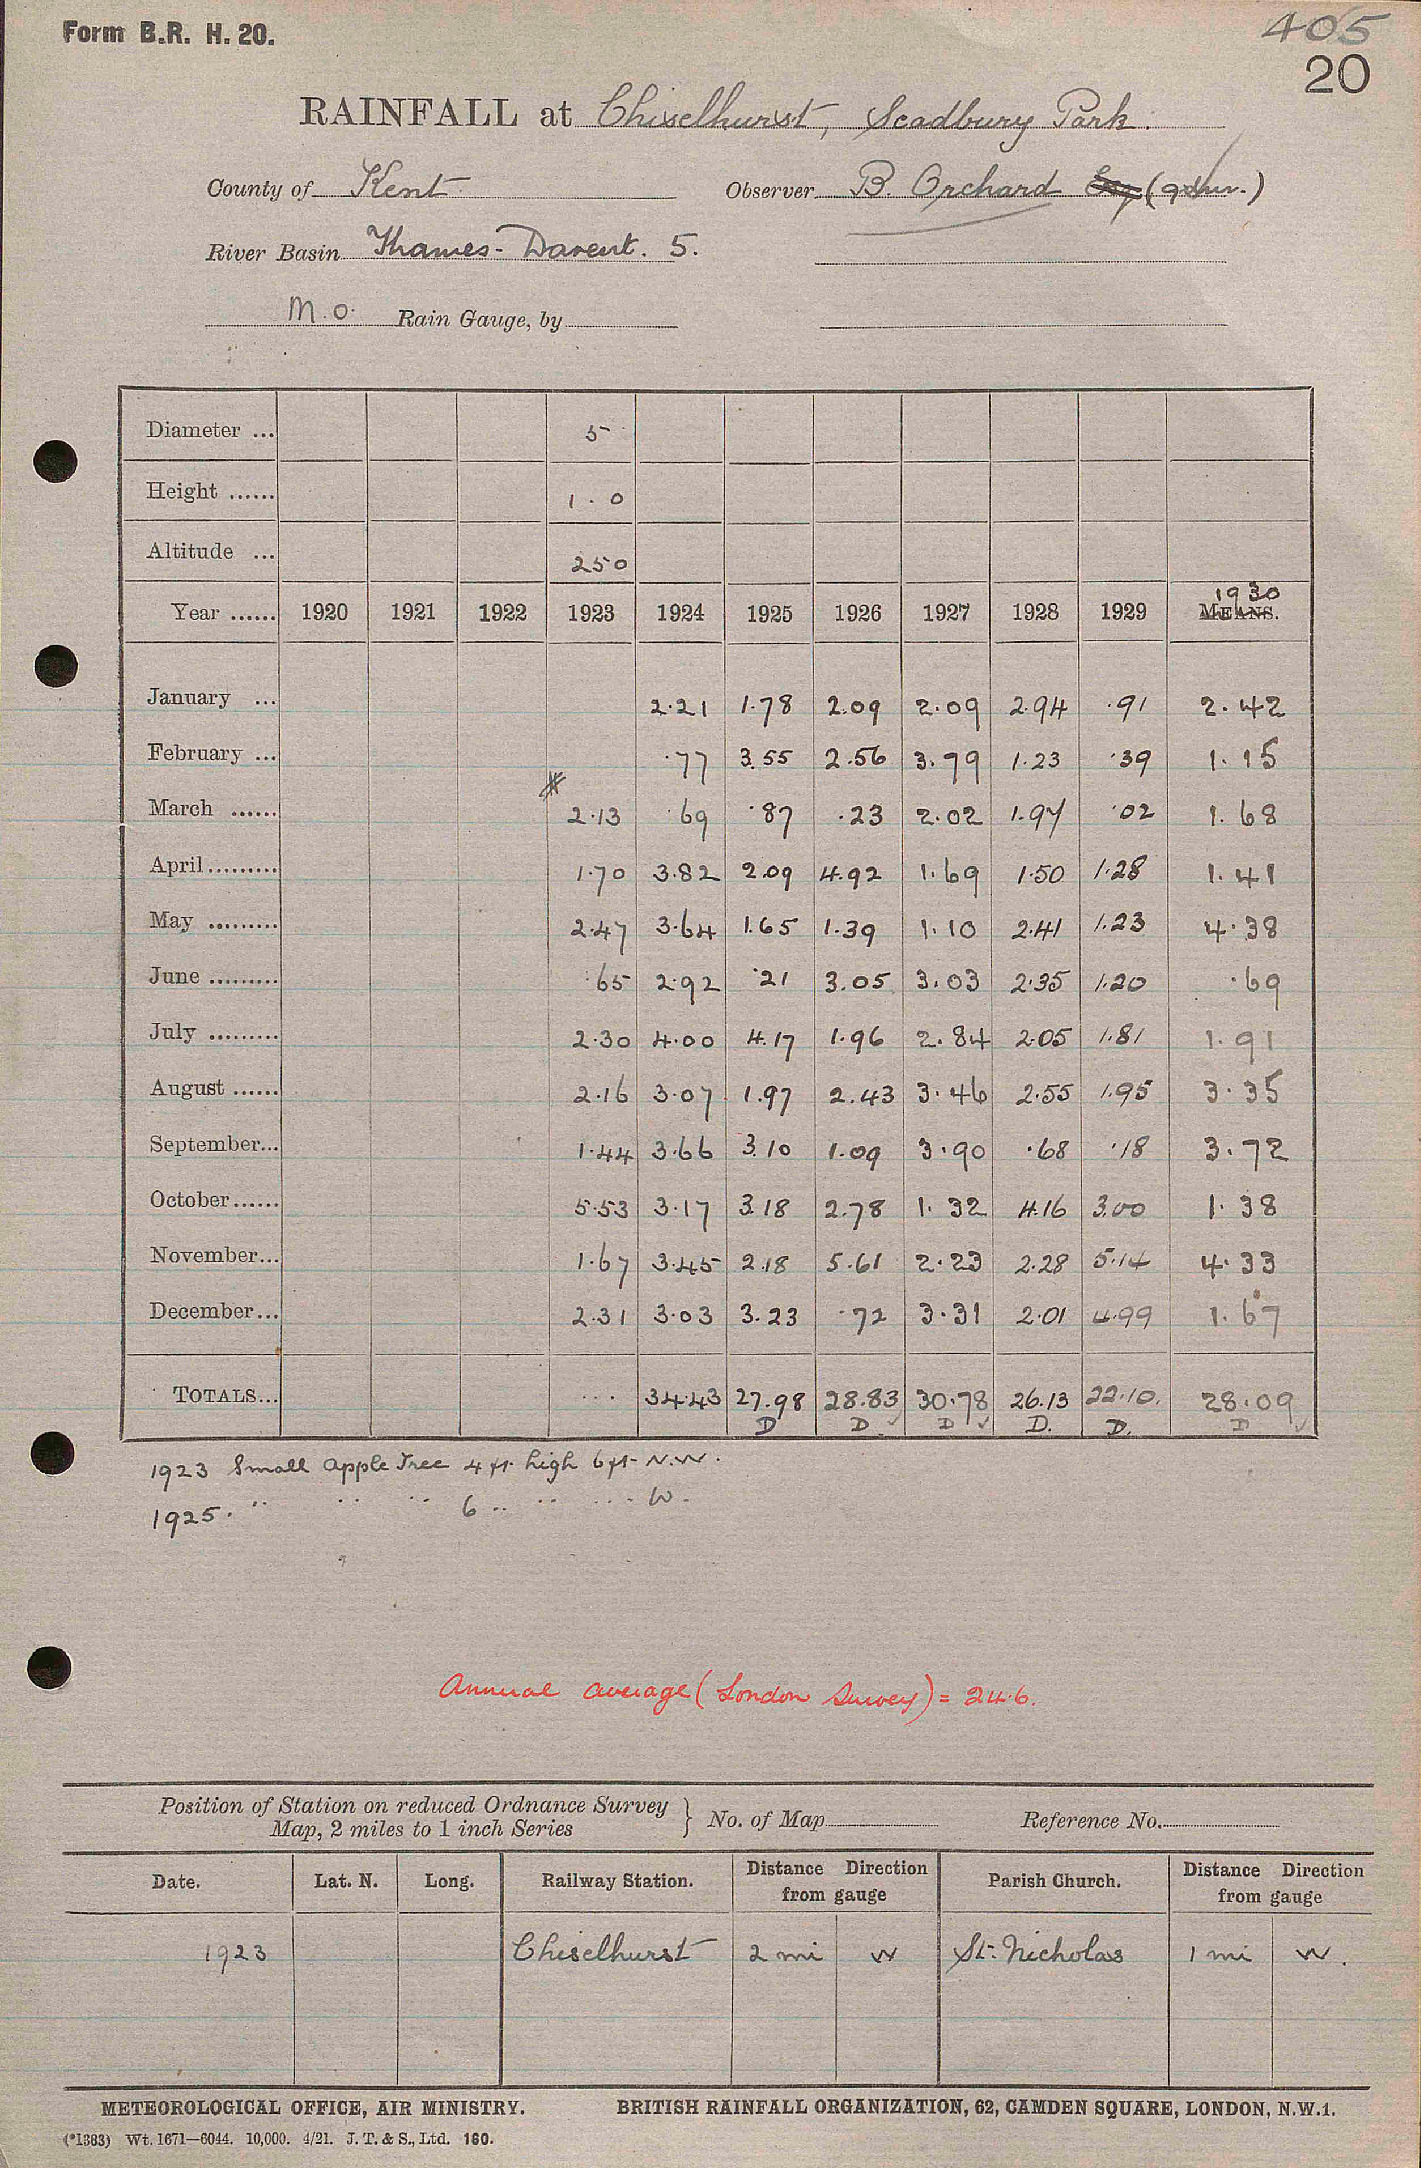 Form B.R. H. 20.
405
20
RAINFALL at Chiselhurst, Scadbury Park.
County of Kent Observer B. Orchard Esq
River Basin Thames - Darent. 5.
M.O. Rain Gauge, by
Diameter ... 5
Height ...... 1.0
Altitude ... 250
1930
Year ...... 1920 1921 1922 1923 1924 1925 1926 1927 1928 1929 MEANS.
January ... 2.21 1.78 2.09 2.09 2.94 .91 2.42
February ... .77 3.55 2.56 3.79 1.23 .39 1.15
March ...... 2.13 .69 .87 .23 2.02 1.97 .02 1.68
April......... 1.70 3.82 2.09 4.92 1.69 1.50 1.28 1.41
May ......... 2.47 3.64 1.65 1.39 1.10 2.41 1.23 4.38
June ......... .65 2.92 .21 3.05 3.03 2.35 1.20 .69
July ......... 2.30 4.00 4.17 1.96 2.84 2.05 1.81 1.91
August ...... 2.16 3.07 1.97 2.43 3.46 2.55 1.95 3.35
September... 1.44 3.66 3.10 1.09 3.90 .68 .18 3.72
October...... 5.53 3.17 3.18 2.78 1.32 4.16 3.00 1.38
November... 1.67 3.45 2.18 5.61 2.23 2.28 5.14 4.33
December... 2.31 3.03 3.23 .72 3.31 2.01 4.99 1.67
TOTALS... ... 34.43 27.98 28.83 30.78 26.13 22.10. 28.09
D D D D. D. D
1923 Small apple Tree 4 ft. high 6 ft. N.W.
1925. " " " 6 " " " W.
Annual average (London Survey) = 24.6.
Position of Station on reduced Ordnance Survey
Map, 2 miles to 1 inch Series } No. of Map Reference No.
Date. Lat. N. Long. Railway Station. Distance Direction from gauge Parish Church. Distance Direction from gauge
1923 Chiselhurst 2 mi W St. Nicholas 1 mi W.
METEOROLOGICAL OFFICE, AIR MINISTRY. BRITISH RAINFALL ORGANIZATION, 62, CAMDEN SQUARE, LONDON, N.W.1.
(*1383) Wt. 1671—6044. 10,000. 4/21. J. T. & S., Ltd. 160.